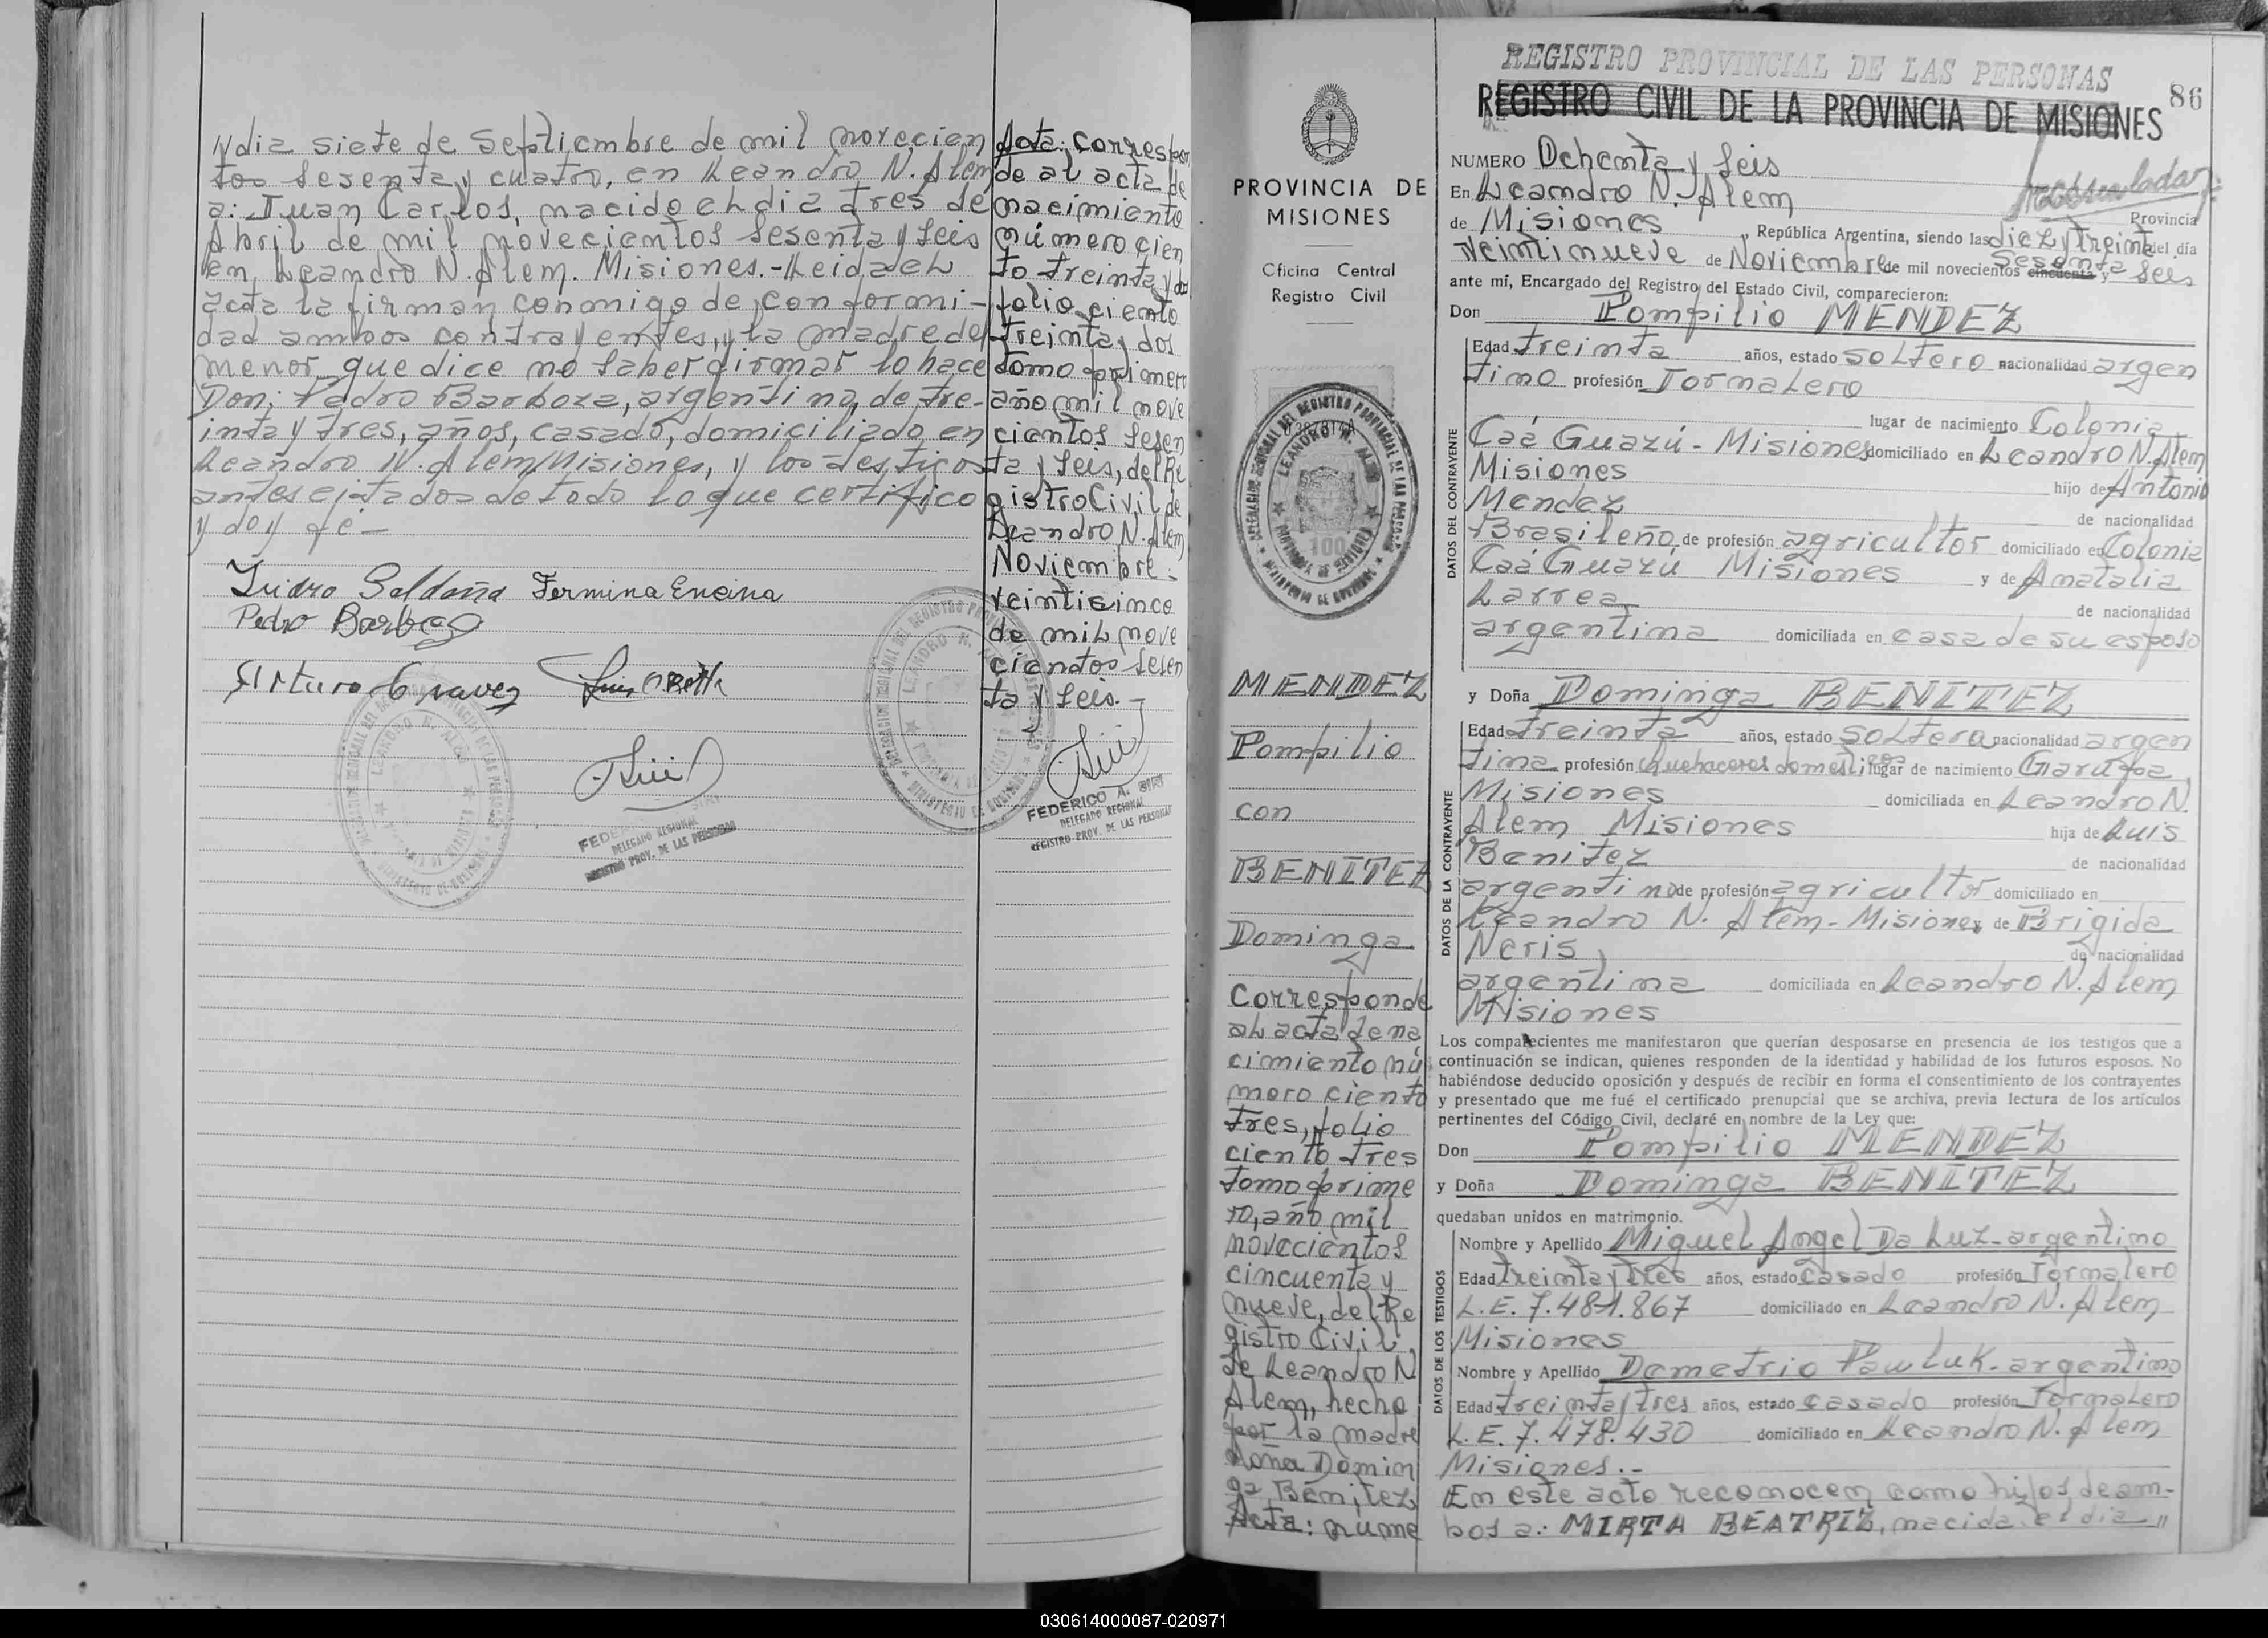 y dia siete de Septiembre de mil novecien
tos sesenta y cuatro, en Leandro N. Alem
a: Juan Carlos, nacido el dia tres de
Abril de mil novecientos sesenta y seis
en Leandro N. Alem. Misiones.- Leida el
acta la firman conmigo de conformi-
dad ambos contrayentes, y la madre del
menor que dice no saber firmar lo hace
Don: Pedro Barboza, argentino, de tre-
inta y tres, años, casado, domiciliado en
Leandro N. Alem Misiones, y los testigos
antes citados de todo lo que certifico
y doy fe.-
Isidro Saldaña Fermina Encina
Pedro Barboza
Arturo Chavez
DELEGADO REGIONAL
REGISTRO PROV. DE LAS PERSONAS
Acta: correspon
de al acta de
nacimiento
número cien
to treinta y dos
folio ciento
treinta y dos
tomo primero
año mil nove
cientos sesen
ta y seis, del Re
gistro Civil de
Leandro N. Alem
Noviembre
veinticinco
de mil nove
cientos sesen
ta y seis.-
FEDERICO A. SIRI
DELEGADO REGIONAL
REGISTRO PROV. DE LAS PERSONAS
PROVINCIA DE
MISIONES
Oficina Central
Registro Civil
MENDEZ
Pompilio
con
BENITEZ
Dominga
Corresponde
al acta de na
cimiento nú
mero ciento
tres, folio
ciento tres
tomo prime
ro, año mil
novecientos
cincuenta y
nueve, del Re
gistro Civil
de Leandro N.
Alem, hecho
por la madre
doña Domin
ga Benitez
Acta: núme
REGISTRO PROVINCIAL DE LAS PERSONAS
86
REGISTRO CIVIL DE LA PROVINCIA DE MISIONES
NUMERO Ochenta y Seis
En Leandro N. Alem Provincia
de Misiones, República Argentina, siendo las diez y treinta del día
veintinueve de Noviembre de mil novecientos cincuenta sesenta y seis
ante mí, Encargado del Registro del Estado Civil, comparecieron:
Don Pompilio MENDEZ
DATOS DEL CONTRAYENTE
Edad treinta años, estado soltero nacionalidad argen
tino profesión Jornalero
lugar de nacimiento Colonia
Caá Guazú - Misiones domiciliado en Leandro N. Alem
Misiones hijo de Antonio
Mendez de nacionalidad
Brasileño de profesión agricultor domiciliado en Colonia
Caá Guazú Misiones y de Amatalia
Larrea de nacionalidad
argentina domiciliada en casa de su esposo
y Doña Dominga BENITEZ
DATOS DE LA CONTRAYENTE
Edad treinta años, estado soltera nacionalidad argen
tina profesión Quehaceres domesticos lugar de nacimiento Garupa
Misiones domiciliada en Leandro N.
Alem Misiones hija de Luis
Benitez de nacionalidad
argentino de profesión agricultor domiciliado en
Leandro N. Alem - Misiones y de Brigida
Neris de nacionalidad
argentina domiciliada en Leandro N. Alem
Misiones
Los comparecientes me manifestaron que querían desposarse en presencia de los testigos que a
continuación se indican, quienes responden de la identidad y habilidad de los futuros esposos. No
habiéndose deducido oposición y después de recibir en forma el consentimiento de los contrayentes
y presentado que me fué el certificado prenupcial que se archiva, previa lectura de los artículos
pertinentes del Código Civil, declaré en nombre de la Ley que:
Don Pompilio MENDEZ
y Doña Dominga BENITEZ
quedaban unidos en matrimonio.
DATOS DE LOS TESTIGOS
Nombre y Apellido Miguel Angel Da Luz - argentino
Edad treinta y tres años, estado casado profesión Jornalero
L.E. 7.481.867 domiciliado en Leandro N. Alem
Misiones
Nombre y Apellido Demetrio Pawluk - argentino
Edad treinta y tres años, estado casado profesión Jornalero
L.E. 7.478.430 domiciliado en Leandro N. Alem
Misiones.-
En este acto reconocen como hijos de am-
bos a: MIRTA BEATRIZ, nacida el dia "
030614000087-020971